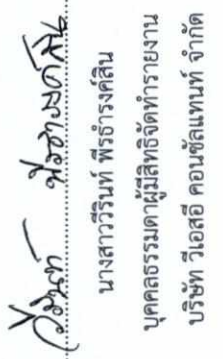 นางสาววีรินท์ พีรธำรงค์สิน
บุคคลธรรมดาผู้มีสิทธิจัดทำรายงาน
บริษัท วีเอสอี คอนซัลแทนท์ จำกัด